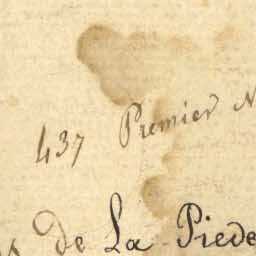 437 Premier N
s de La Piede